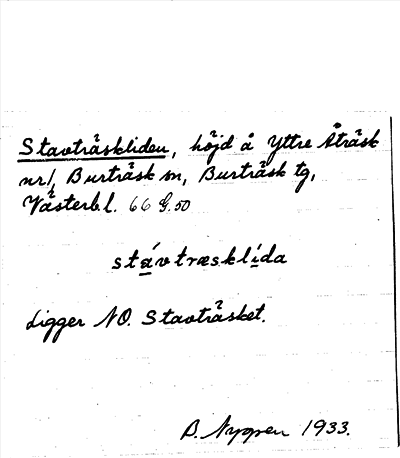 Stavträskliden, höjd å Yttre Åträsk
nr 1, Burträsk sn, Burträsk tg,
Västerb.l. 66 G.50
stávtræsklída
Ligger NO. Stavträsket.
B. Nygren 1933.